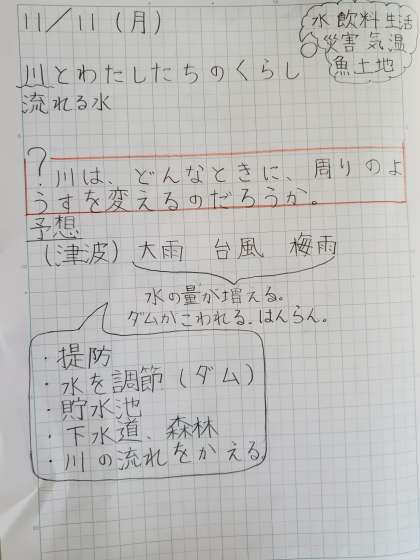 11/11(月)
水 飲料 生活
災害 気温
魚 土地
川とわたしたちのくらし
流れる水
?
川は、どんなときに、周りのよ
うすを変えるのだろうか。
予想
(津波) 大雨 台風 梅雨
水の量が増える。
ダムがこわれる。はんらん。
・提防
・水を調節(ダム)
・貯水池
・下水道、森林
・川の流れをかえる。